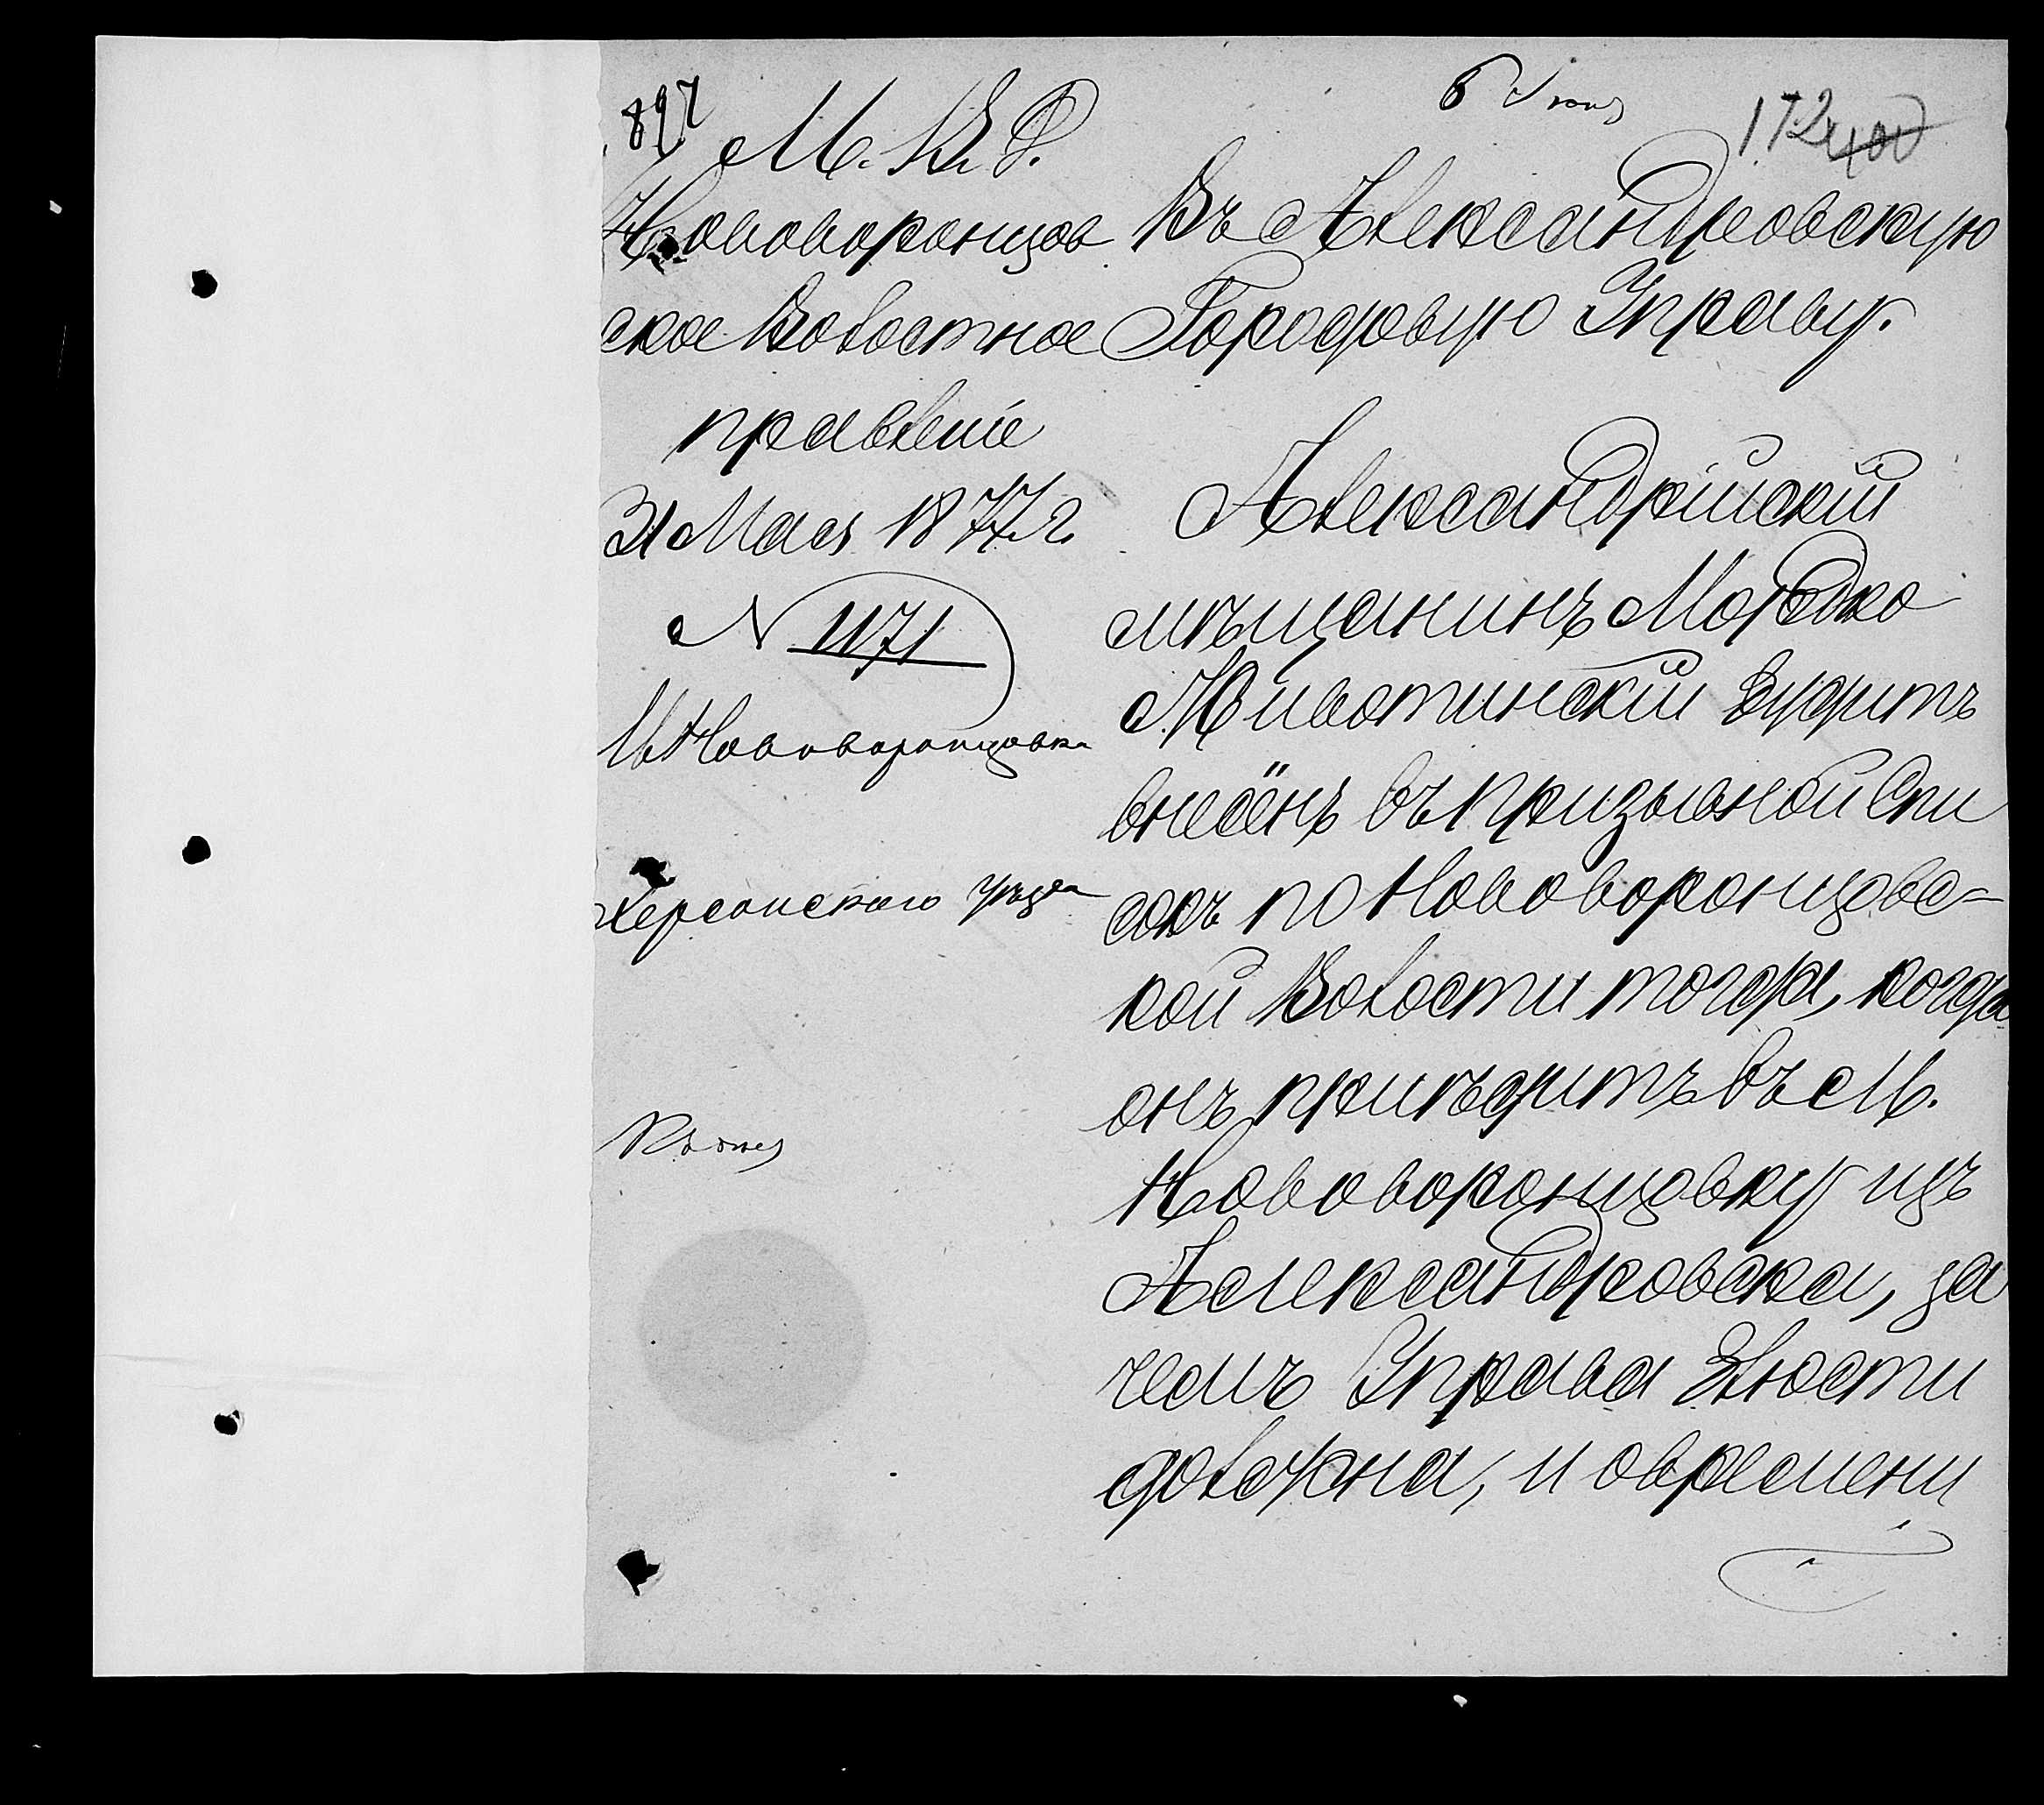 897
М. В. Д.
Нововоронцов
ское Волостное
правленіе
31 Мая 1877 г.
N 1171
М. Нововоронцовка
Херсонскаго уезда
6 Іюня
172
400
Въ Александровскую
Городовую Управу.
Александрійскій
мѣщанинъ Мордко
Животинскій будитъ
внесёнъ въ призывной спи
сокъ по Нововоронцовс-
кой Волости тогда, когда
онъ приѣдитъ въ М.
Нововоронцовку изъ
Александровска, за
чемъ Управа блюсти
должна, и овремени